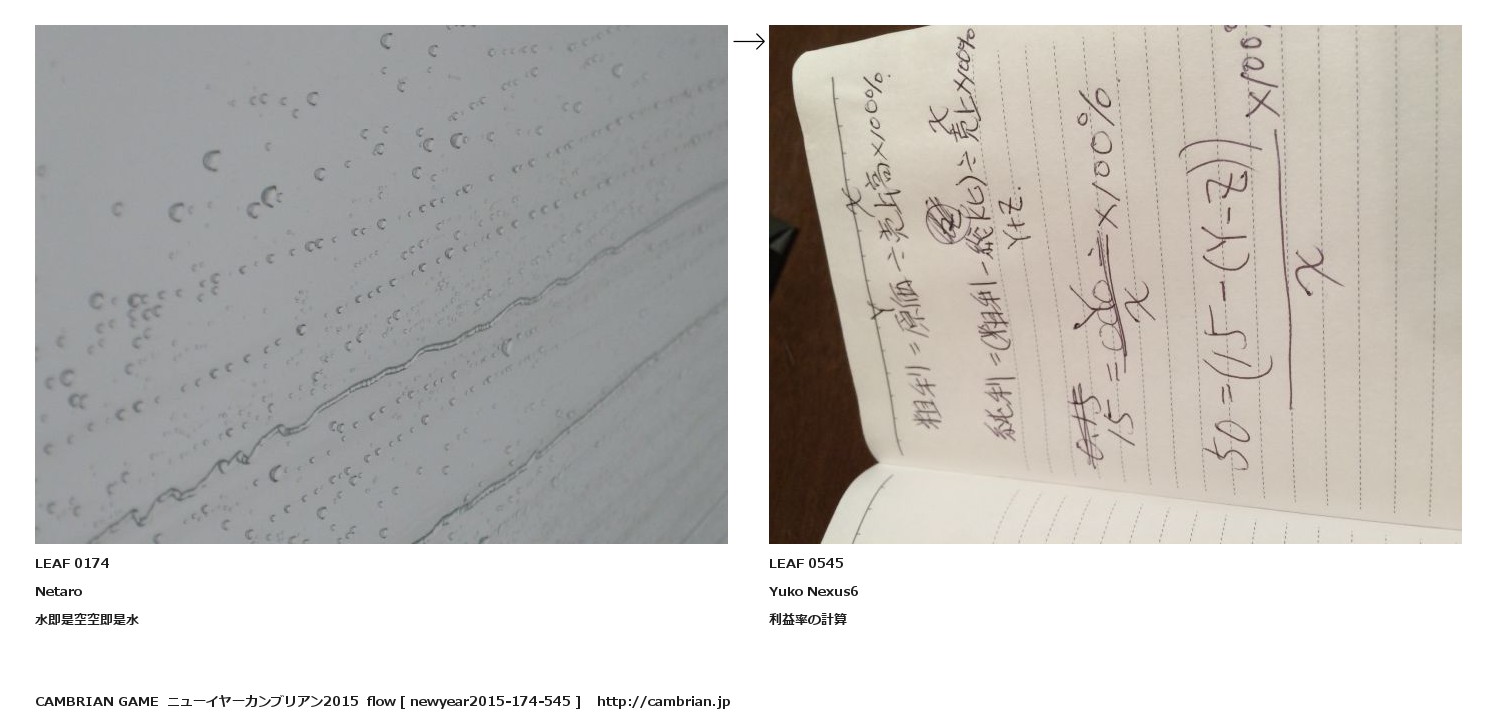 →
粗利=原価÷売上高×100%.
Y
x
純利=(粗利-総代ヒ)÷売上×100%
x
Y+Z.
0.15
15=
Y
x
×100%.
50=(15-(Y-Z))
x
×100%
LEAF 0174
Netaro
水即是空空即是水
LEAF 0545
Yuko Nexus6
利益率の計算
CAMBRIAN GAME ニューイヤーカンブリアン2015 flow [ newyear2015-174-545 ] http://cambrian.jp